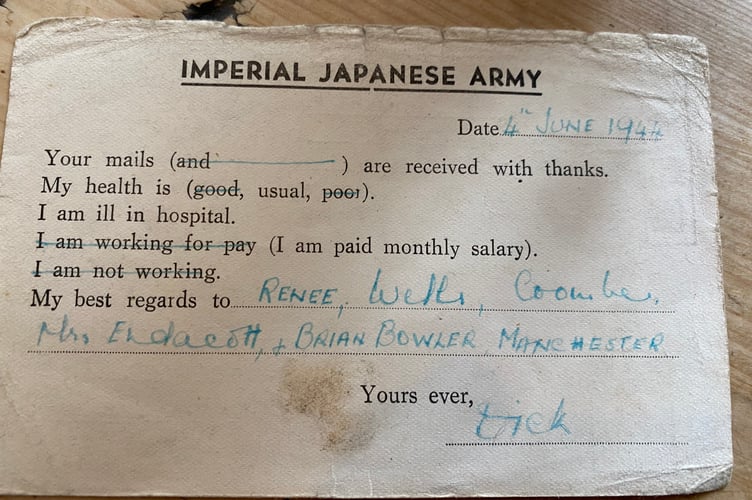 IMPERIAL JAPANESE ARMY
Date 4th JUNE 1944
Your mails (and ) are received with thanks.
My health is (good, usual, poor).
I am ill in hospital.
I am working for pay (I am paid monthly salary).
I am not working.
My best regards to RENEE, Wells, Coombes,
Mrs Endacott, + BRIAN BOWLER MANCHESTER
Yours ever,
Dick